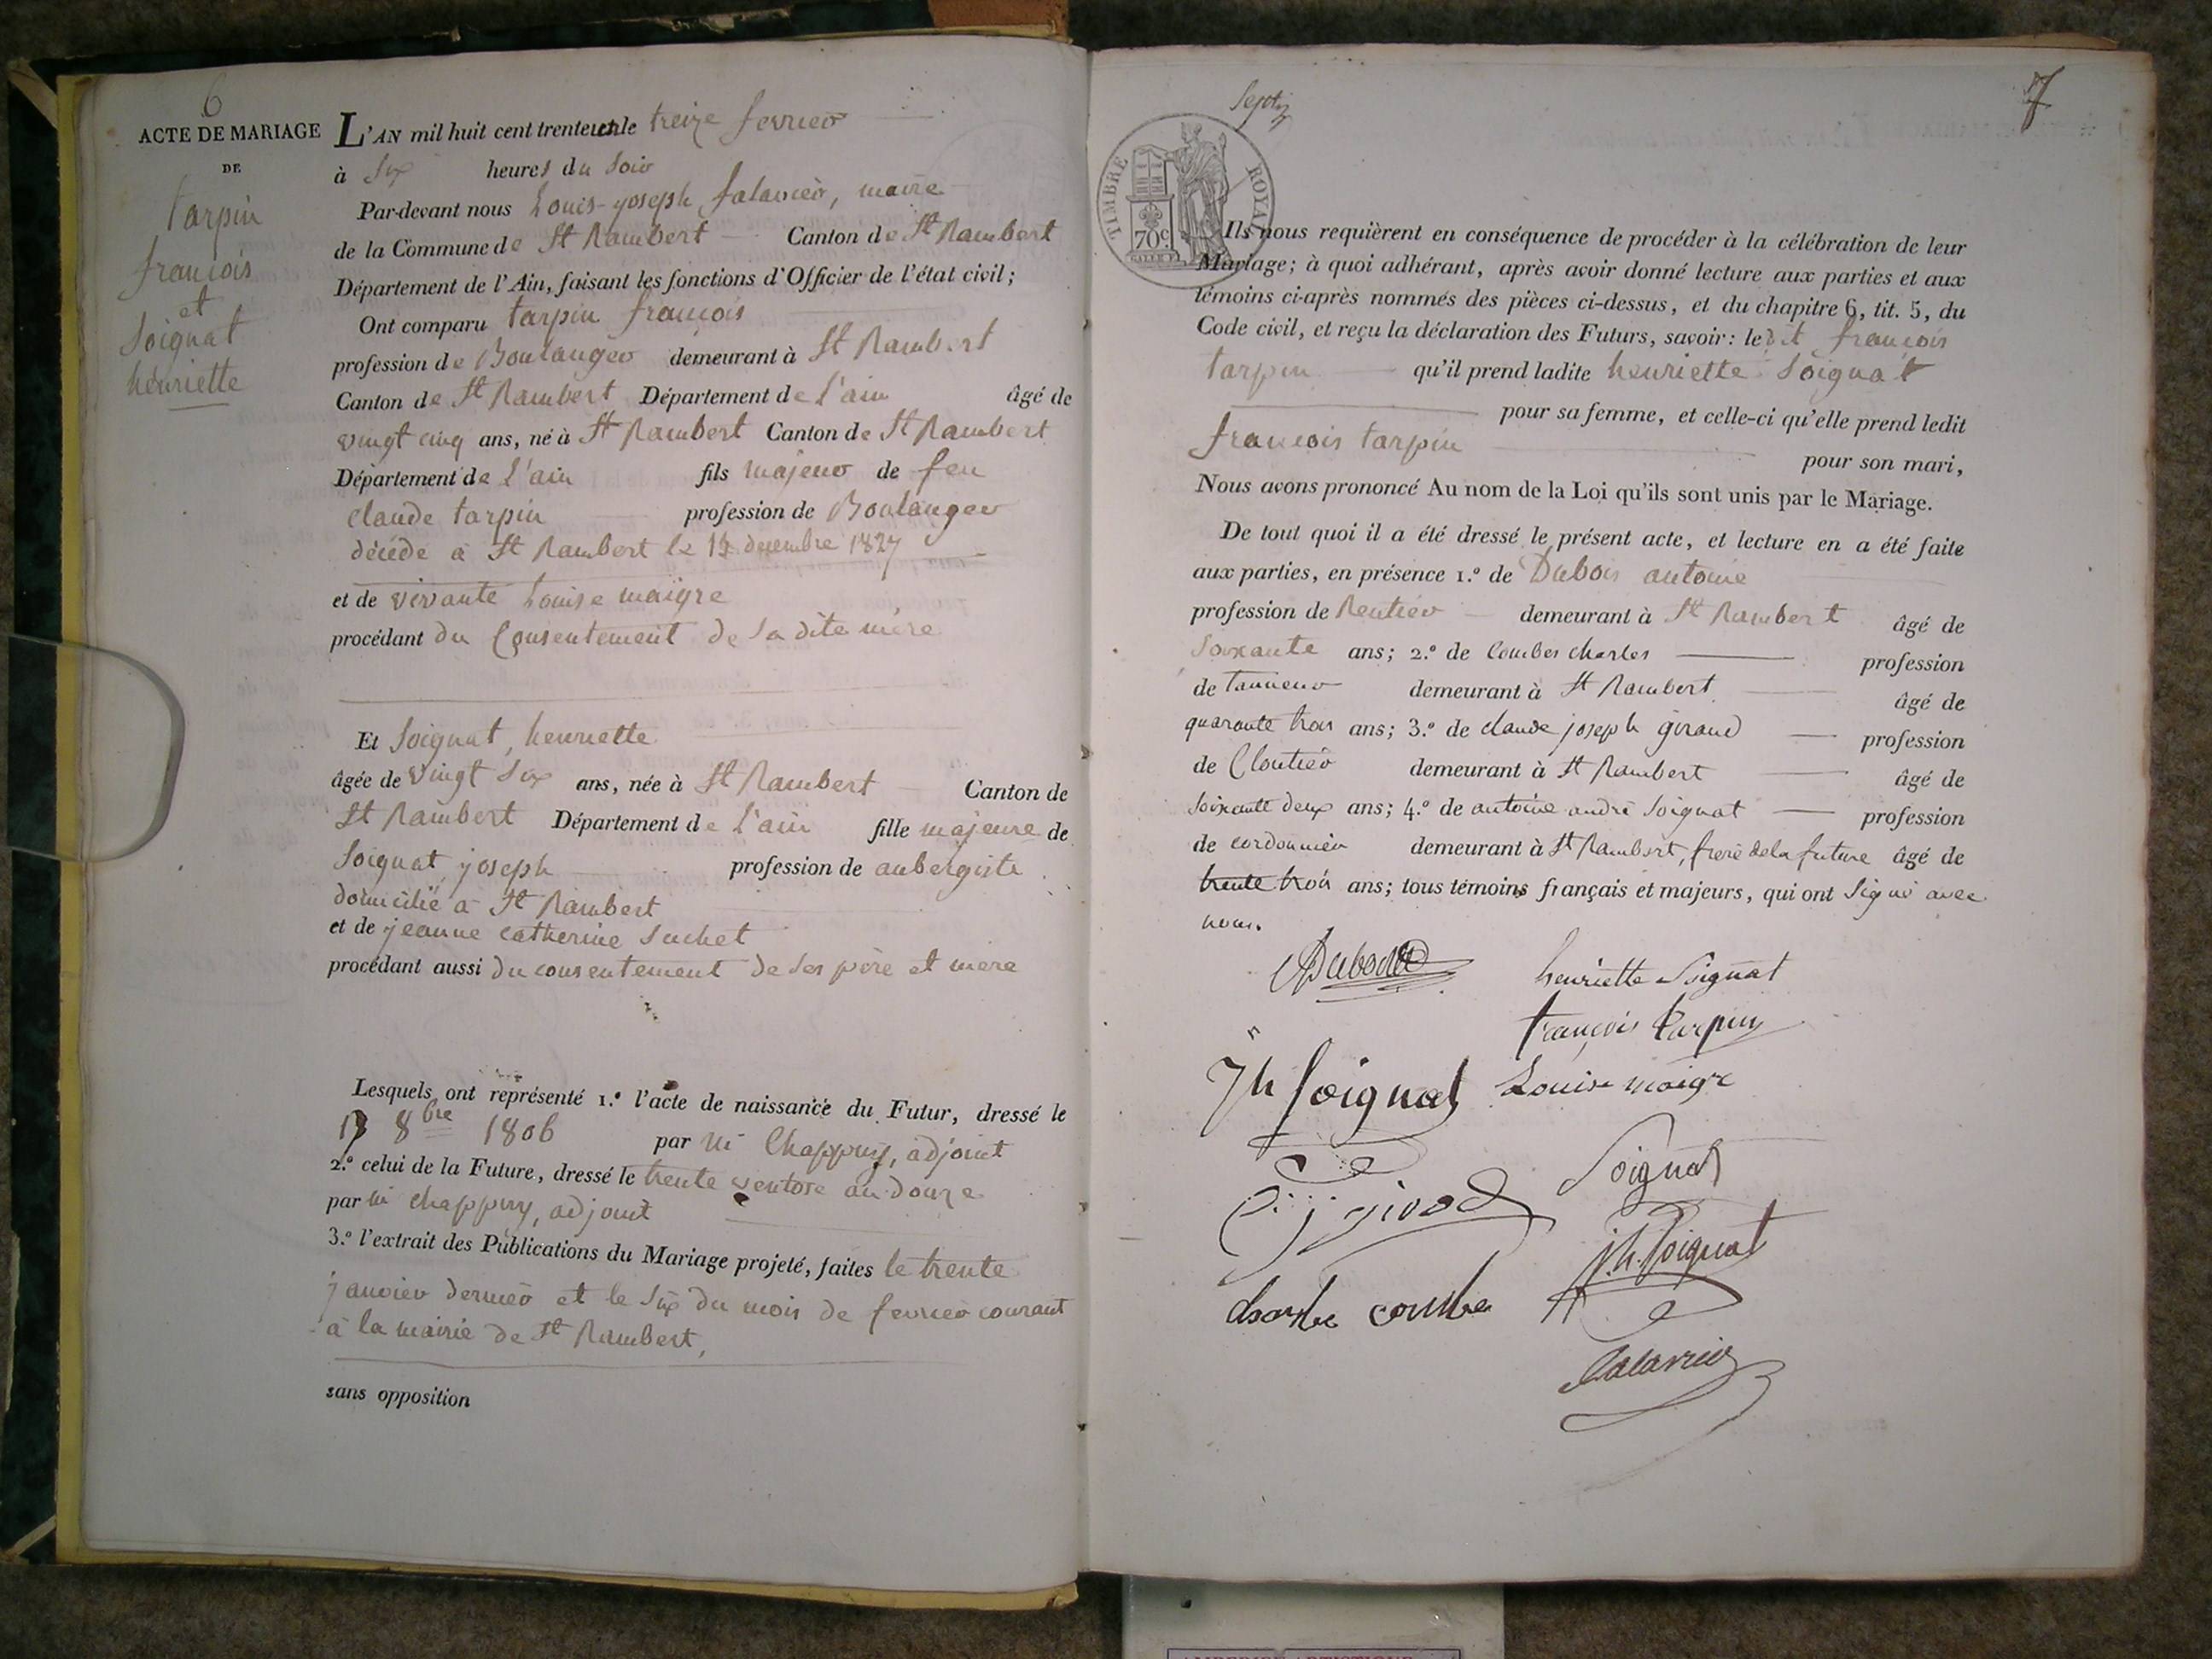 6
ACTE DE MARIAGE
DE
tarpin
francois
et
Soignat
henriette
L'AN mil huit cent trente le treize fevrier
à Six heures du soir
Par-devant nous Louis-joseph falavier, maire
de la Commune de St Rambert Canton de St Rambert
Département de l'Ain, faisant les fonctions d'Officier de l'état civil;
Ont comparu tarpin francois
profession de Boulanger demeurant à St Rambert
Canton de St Rambert Département de l'ain âgé de
vingt cinq ans, né à St Rambert Canton de St Rambert
Département de l'ain fils majeur de feu
claude tarpin profession de Boulanger
décédé a St Rambert le decembre 1827
et de vivante Louise maigre
procédant du Consentement de sa dite mère
Et Soignat, henriette
âgée de vingt Six ans, née à St Rambert Canton de
St Rambert Département de l'ain fille majeure de
Soignat joseph profession de aubergiste
domicilié a St Rambert
et de jeanne catherine Suchet
procédant aussi du consentement de ses père et mère
Lesquels ont représenté 1.º l'acte de naissance du Futur, dressé le
8bre 1806 par Mr Chappuy, adjoint
2.º celui de la Future, dressé le trente ventose an douze
par Mr chappuy, adjoint
3.º l'extrait des Publications du Mariage projeté, faites le trente
janvier dernier et le Six du mois de fevrier courant
a la mairie de St Rambert,
sans opposition
7
TIMBRE ROYAL
70c.
Ils nous requièrent en conséquence de procéder à la célébration de leur
Mariage; à quoi adhérant, après avoir donné lecture aux parties et aux
témoins ci-après nommés des pièces ci-dessus, et du chapitre 6, tit. 5, du
Code civil, et reçu la déclaration des Futurs, savoir: ledit francois
tarpin qu'il prend ladite henriette Soignat
pour sa femme, et celle-ci qu'elle prend ledit
francois tarpin
pour son mari,
Nous avons prononcé Au nom de la Loi qu'ils sont unis par le Mariage.
De tout quoi il a été dressé le présent acte, et lecture en a été faite
aux parties, en présence 1.º de Dubois antoine
profession de Rentier demeurant à St Rambert âgé de
Soixante ans; 2.º de Combes charles profession
de tanneur demeurant à St Rambert âgé de
quarante trois ans; 3.º de claude joseph giraud profession
de Cloutier demeurant à St Rambert âgé de
Soixante deux ans; 4.º de antoine andré Soignat profession
de cordonnier demeurant à St Rambert, frere dela future âgé de
trente trois ans; tous témoins français et majeurs, qui ont Signé avec
nous.
henriette Soignat
françois tarpin
Jh Soignat Louise maigre
Soignat
j.h. Soignat